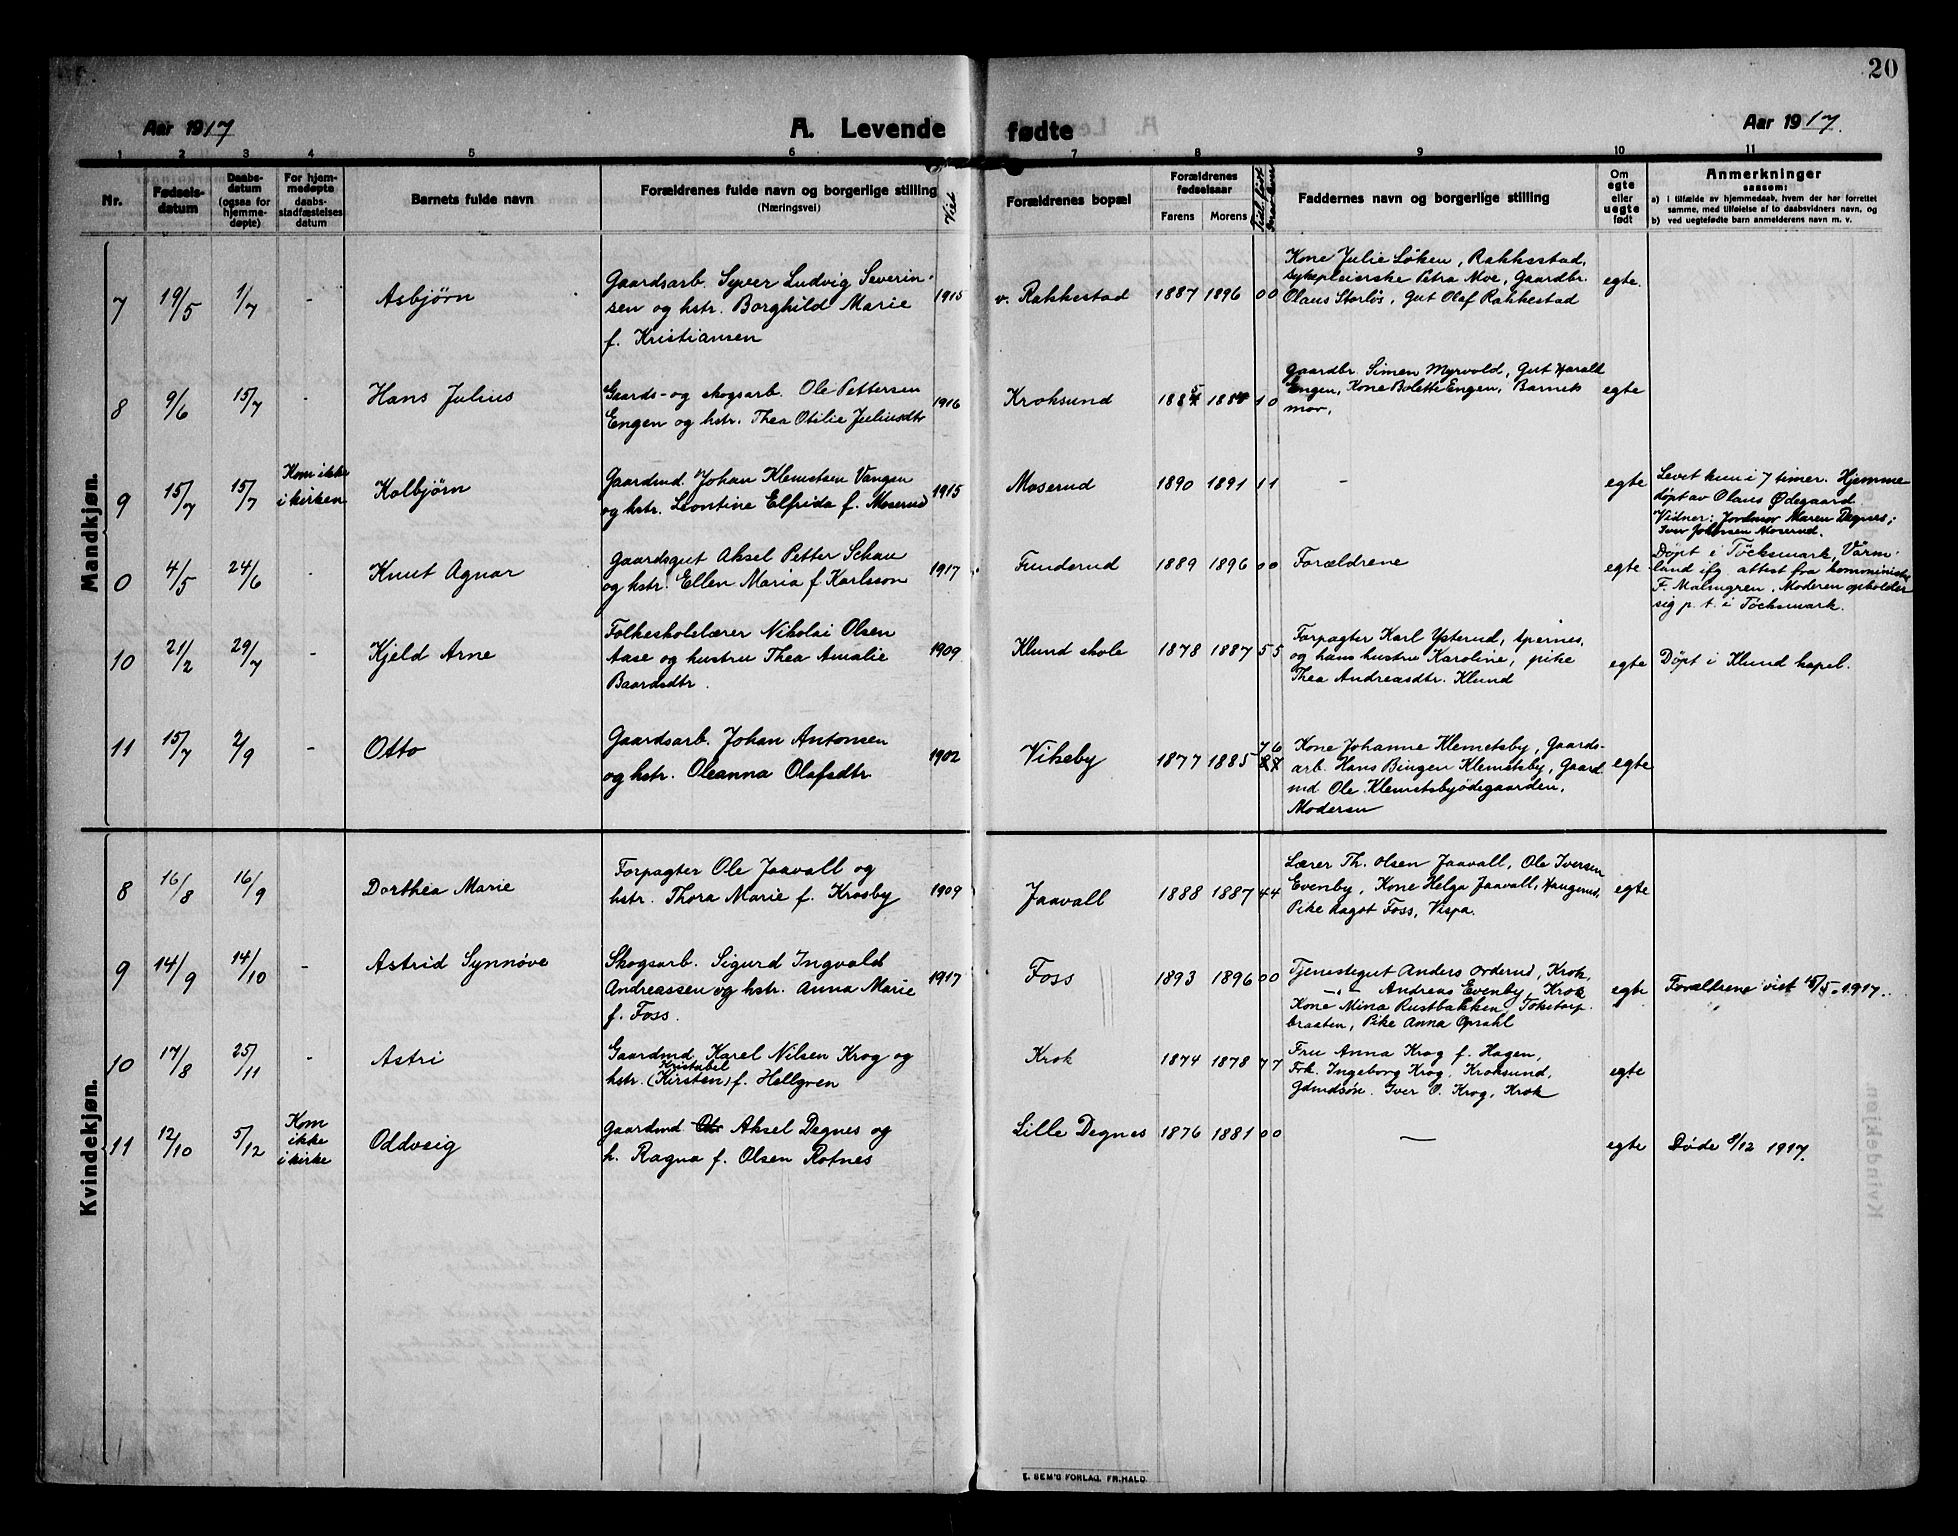 20
Aar 1917 A. Levende fødte Aar 1917.
1 2 3 4 5 6 7 8 9 10 11
Nr. Fødselsdatum Daabsdatum (ogsaa for hjemmedøpte) For hjemmedøpte daabsstadfæstelses datum Barnets fulde navn Forældrenes fulde navn og borgerlige stilling (Næringsvei) Viet Forældrenes bopæl Forældrenes fødselsaar Farens Morens Faddernes navn og borgerlige stilling Om egte eller uegte født Anmerkninger saasom:
a) i tilfælde av hjemmedaab, hvem der har forrettet samme, med tilføielse af to daabsvidners navn, og
b) ved uegtefødte barn anmelderens navn m. v.
Mandkjøn.
7 19/5 1/7 - Asbjørn
Gaardsarb. Syver Ludvig Severin-
sen og hstr. Borghild Marie
f. Kristiansen
1915 v. Rakkestad 1887 1896 0 0
Kone Julie Løken, Rakkestad,
sykepleierske Petra Moe, Gaardbr.
Olaus Storløs, Gut Olaf Rakkestad
egte.
8 9/6 15/7 - Hans Julius
Gaards- og skogsarb. Ole Pettersen
Engen og hstr. Thea Otilie Juliusdtr
1916 Kroksund 1 0
Gaardbr. Simen Myrvold, Gut Harald
Engen, Kone Bolette Engen, Barnets
mor.
egte
9 15/7 15/7 Kom ikke
i kirken
Kolbjørn
Gaardmd. Johan Klemetsen Vangen
og hstr. Leontine Elfrida f. Moserud
1915 Moserud 1890 1891 1 1 - egte
Levet kun i 7 timer. Hjemme
døpt av Olaus Ødegaard.
Vidner: Jordmor Maren Degnes;
Iver Johansen Moserud.
0 4/5 24/6 - Knut Agnar
Gaardsgut Aksel Petter Schau
og hstr. Ellen Maria f. Karlsson
1917 Funderud 1889 1896 0 0 Forældrene egte
Døpt i Töcksmark, Värm-
land ifg. attest fra komminister
F. Malmgren. Moderen opholder
sig p. t. i Töcksmark.
10 21/2 29/7 - Kjeld Arne
Folkeskolelærer Nikolai Olsen
Aase og hustru Thea Amalie
Baardsdtr.
1909 Klund skole 1878 1887 5 5
Forpagter Karl Ysterud, Spernes,
og hans hustru Karoline, pike
Thea Andreasdtr. Klund
egte Døpt i Klund kapel.
11 15/7 2/9 - Otto
Gaardsarb. Johan Antonsen
og hstr. Oleanna Olafsdtr.
1902 Vikeby 1877 1885 7 6
8 7
Kone Johanne Klemetsby, Gaards-
arb. Hans Bingen Klemetsby, Gaard
md Ole Klemetsbyødegaarden,
Moderen
egte
Kvindekjøn.
8 16/8 16/9 Dorthea Marie
Forpagter Ole Jaavall og
hstr. Thora Marie f. Krosby
1909 Jaavall 1888 1887 4 4
Lærer Th. Olsen Jaavall, Ole Iversen
Evenby, Kone Helga Jaavall, Haugerud,
Pike Ragot Foss, Vispa.
egte
9 14/9 14/10 - Astrid Synnøve
Skogsarb. Sigurd Ingvald
Andreassen og hstr. Anna Marie
f. Foss.
1917 Foss 1893 1896 0 0
Tjenestegut Anders Orderud, Krok,
-"- Andreas Evenby, Krok
Kone Mina Rustbakken Toketorp
braaten, Pike Anna Opsahl
egte Forældrene viet 15/5 1917.
10 17/8 25/11 - Astri
Gaardmd. Karel Nilsen Krog og
Kristabel
hstr. (Kirsten) f. Hellgren
Krok 1874 1878 7 7
Fru Anna Krog f. Hagen,
Frk. Ingeborg Krog, Kroksund,
Gdmdsøn. Iver O. Krog, Krok
egte
11 12/10 5/12 Kom
ikke
i kirke
Oddveig
Gaardmd. Ole Aksel Degnes og
h. Ragna f. Olsen Rotnes
Lille Degnes 1876 1881 0 0 - egte Døde 8/12 1917.
E. SEM'S FORLAG, FR.HALD.